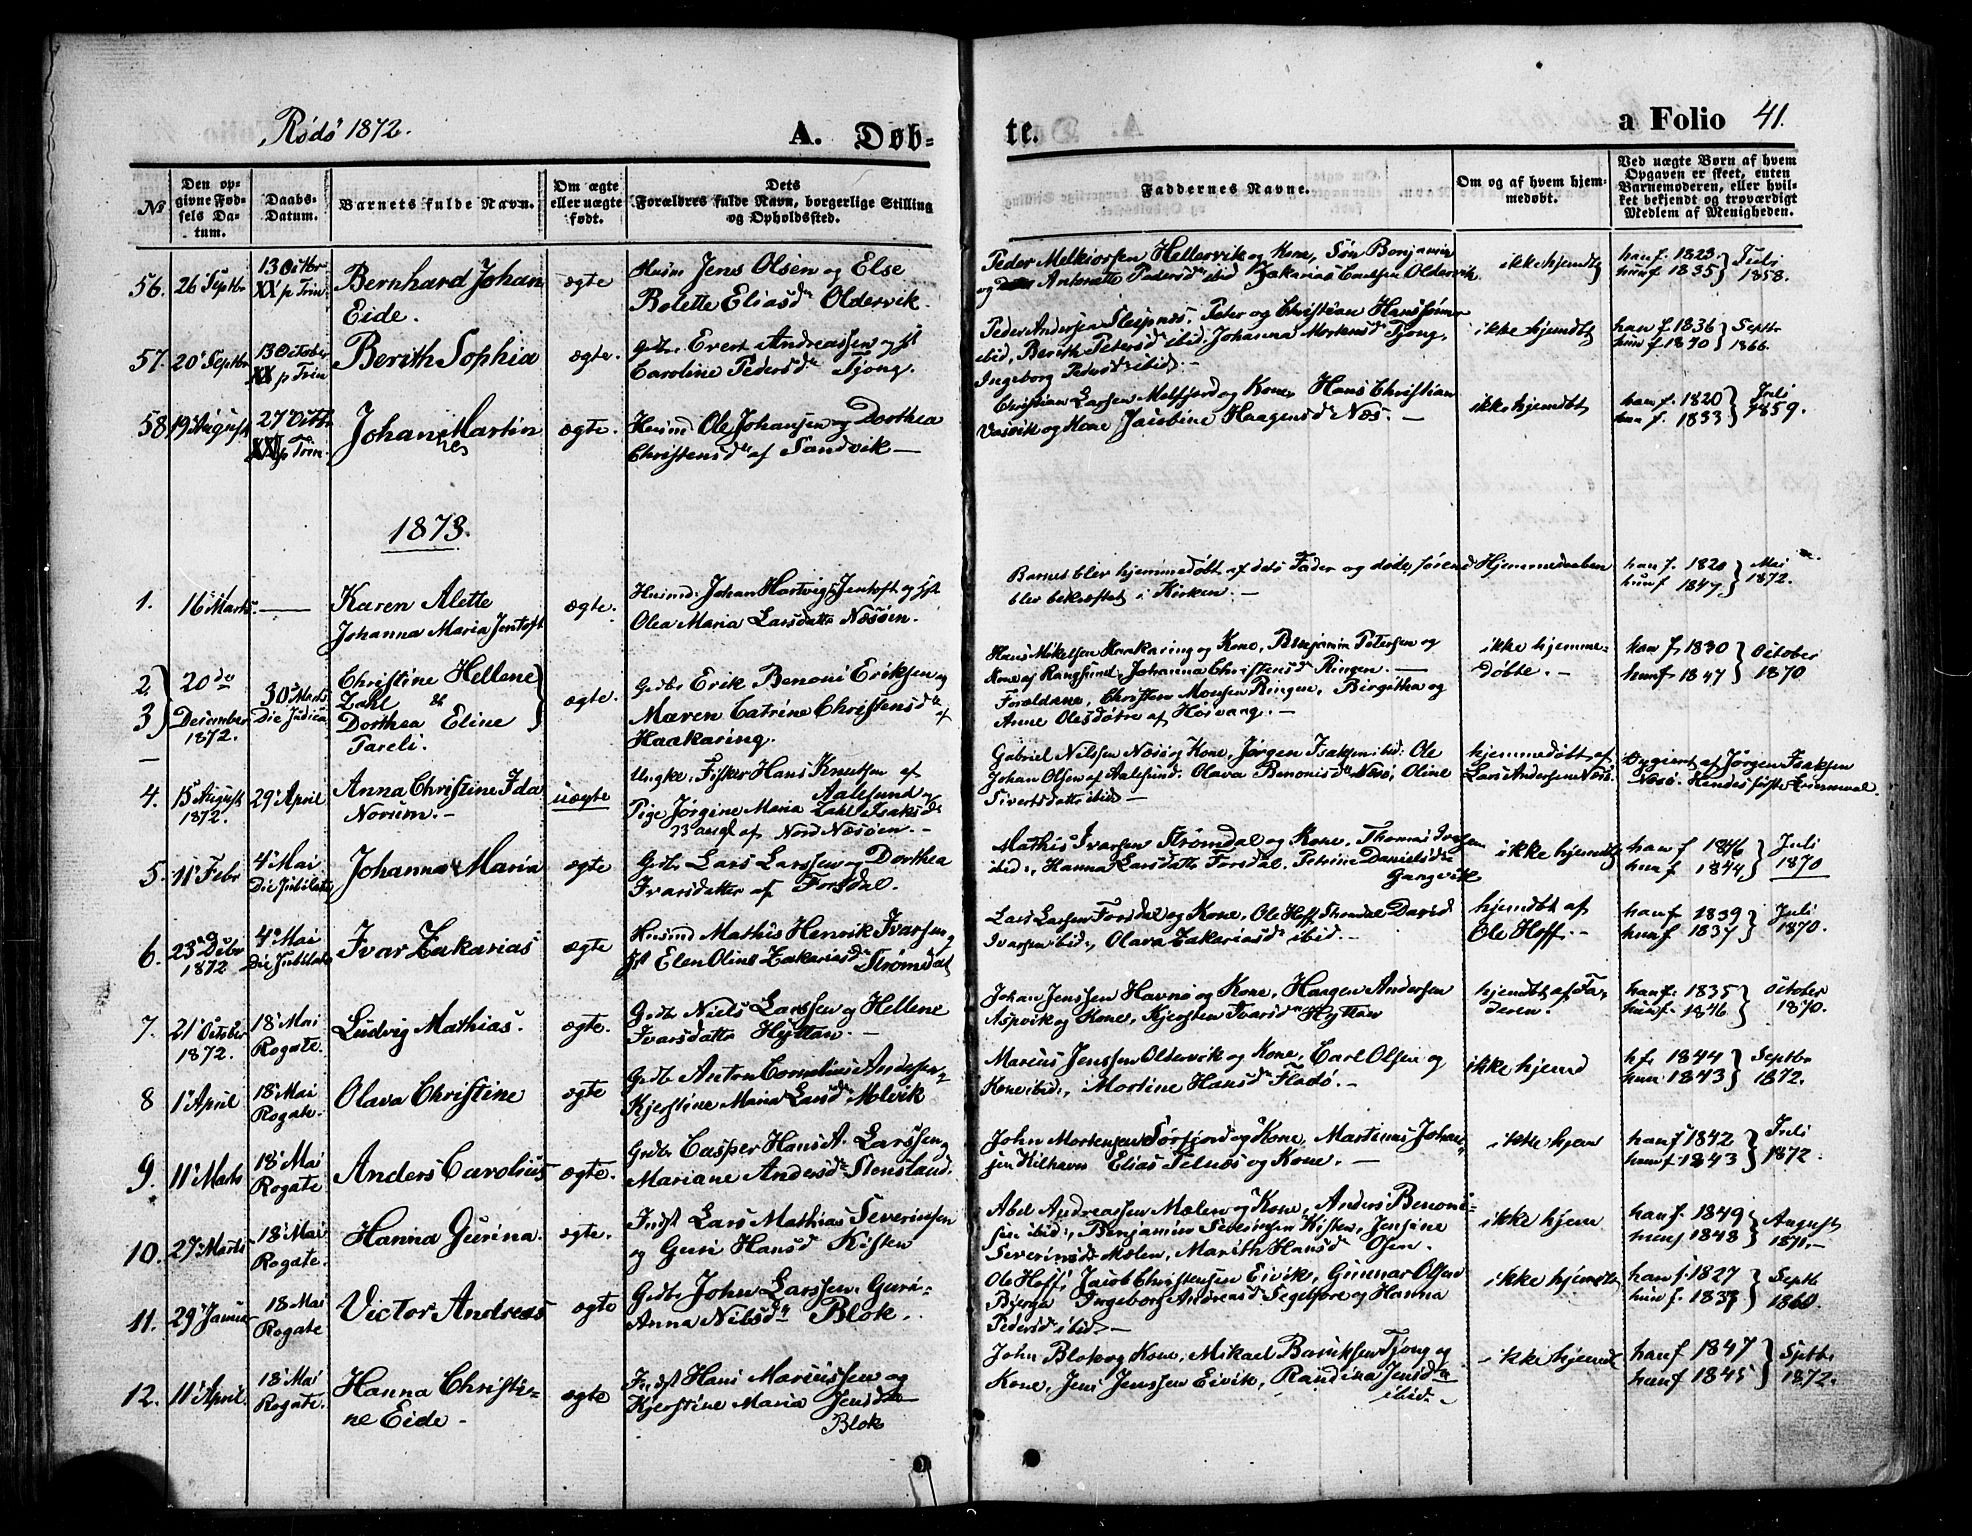 Rødø 1872.
A. Døb-
te.
a Folio 41.
No
Den op-
givne Fød-
sels Da-
tum.
Daabs-
Datum.
Barnets fulde Navn.
Om ægte
eller uægte
født.
Dets
Forældres fulde Navn, borgerlige Stilling
og Opholdssted.
Faddernes Navne.
Om og af hvem hjem-
medøbt.
Ved uægte Børn af hvem
Opgaven er skeet, enten
Barnemøderen, eller hvil-
ket bekjendt og troværdigt
Medlem af Menigheden.
56. 26 Septbr
13 Octbr
XX p Trin
Bernhard Johan
Eide.
ægte
Husm Jens Olsen og Else
Bolette Eliasd Oldervik.
Peder Melkiorsen Hellervik og Kone, Søn Benjamin
og Antonette Pedersd ibid Zakarias Carlsen Oldervik
ikke hjemdøbt
han f. 1823
hun f. 1835
Juli
1858.
57. 20 Septbr
13 October
XX p Trin
Berith Sophia
ægte.
Gdbr Evert Andreassen og
Caroline Pedersd Tjong.
Peder Andersen Sleipnes, Peter og Christian Hanssønner
ibid, Berith Petersd ibid, Johanna Mortensd Tjong,
Ingeborg Pedersd ibid. -
ikke hjemdbt
han f. 1836
hun f. 1870
Septbr
1866.
58. 19 August
27 Octbr
XXII p Trin.
Johannes Martin
ægte.
Husmd Ole Johansen og Dorthea
Christensd af Sandvik -
Christian Larsen Melfjord og Kone, Hans Christian
Vasvik og Kone Jacobine Haagensd Næs. -
ikke hjemdøbt
han f. 1820
hun f. 1833
Juli
1859.
1873.
1. 16 Marts. -
Karen Alette
Johanna Maria Jentoft
ægte.
Husmd. Johan Hartvigs Jentoft og
Olea Maria Larsdatter Næsøen.
Barnet blev hjemmedøbt af dets Fader og døde, førend
blev bekræftet i Kirken. -
Hjemmedaaben
han f. 1820
hun f. 1847
Mai
1872.
2.
3.
20de
December
1872.
30 Marts
Die Judica
Christine Hellene
Zahl &
Dorthea Eline
Tareli.
ægte.
Gdbr Erik Benoni Eriksen og
Maren Catrine Christensd af
Haakaring.
Hans Mikelsen Haakaring og Kone, Benjamin Petersen og
Kone af Rangsund, Johanna Christensd Ringen. -
Forældrene, Christen Monsen Ringen, Birgitha og
Anne Olesdøtre af Hosvang. -
ikke hjemme-
døbte. -
han f. 1830
hun f. 1847
October
1870
4. 15 August
1872.
29 April
Anna Christine Ida
Norum. -
uægte
Ungke. Fisker Hans Knutsen af
Aalesund og
Pige Jørgine Maria Zahl Isaksd
23 aargl af Nord Næsøen. -
Gabriel Nilsen Næsø og Kone, Jørgen Isaksen ibid: Ole
Johan Olsen af Aalesund. Olava Benonisd Næsø, Oline
Sivertsdatter ibid -
hjemmedøbt af
Lars Andersen
Opgivet af Jørgen Isaksen
Næsø. Hendes første Leiermaal.
5. 11 Febr
4 Mai
Die Jubilate
Johanna Maria
ægte
Gdbr Lars Larssen og Dorthea
Ivarsdatter af Forsdal.
Mathis Ivarsen Strømdal og Kone, Thomas Ivarsen
ibid:, Hanna Larsdatter Forsdal. Petrine Danielsd
Gangvik
ikke hjemdbt
han f 1846
hun f 1844
Juli
1870
6. 23 Decbr
1872
4 Mai
Die Jubilate
Ivar Zakarias
ægte
Husmd Mathis Henrik Ivarsen
Elen Oline Zakariasd Strømdal
Lars Larsen Forsdal og Kone, Ole Hoff Strømdal David
Ivarsen ibid:, Olava Zakariasd ibid. -
hjemdbt af
Ole Hoff. -
han f. 1839
hun f. 1837
Juli
1870.
7. 21 October
1872.
18 Mai
Rogate.
Ludvig Mathias.
ægte.
Gdbr Niels Larssen og Hellene
Ivarsdatter Hyttan. -
Johan Jenssen Havnø og Kone, Haagen Andersen
Aspvik og Kone, Kjersten Ivarsd Hyttan
hjemdbt af Fa-
deren.
han f. 1835
hun f. 1846
October
1870.
8 1 April
18 Mai
Rogate.
Olava Christine
ægte
Gdbr Anton Cornelius Andersen
Kjerstine Maria Larsd Melvik
Marcus Jenssen Oldervik og Kone, Carl Olsen og
Kone ibid:, Mortine Hansd Flatø. -
ikke hjemd
h. f. 1844
hun 1843
Septbr
1872.
9. 11 Marts
18 Mai
Rogate
Anders Carolius
ægte.
Gdbr Casper Hans A. Larssen og
Mariane Andersd Stensland.
John Mortensen Sørfjord og Kone, Martinus Johan-
sen Kilhavn Elias Telnæs og Kone. -
ikke hjem
han f 1842
hun f 1843
Juli
1872.
10. 27 Marts
18 Mai
Rogate.
Hanna Gurina.
ægte.
Indst Lars Mathias Severinsen
og Guri Hansd Kisten
Abel Andreassen Mælen og Kone, Anders Benoni-
sen ibid:, Benjamin Severinsen Kisten, Jensine
Severinsd Mælen, Marith Hansd Osen.
ikke hjem
han f. 1849
hun f 1848
August
1871. -
11. 29 Januar
18 Mai
Rogate
Victor Andreas
ægte
Gdbr John Larssen, Guri-
Anna Nilsd Blok.
Ole Hoff, Jacob Christensen Eivik, Gunnar Olsen
Bjerga Ingeborg Andreasd Segelfore og Hanna
Pedersd ibid. -
ikke hjemdbt
han f. 1827
hun f. 1837
Septb
1860.
12. 11 April.
18 Mai
Rogate.
Hanna Christi-
ne Eide -
ægte
Indst Hans Mariussen og
Kjerstine Maria Jensd
Blok
John Blok og Kone, Mikael Baruksen Tjong og
Kone, Jens Jenssen Eivik, Randina Jensd
ibid. -
ikke hjemdbt
han f 1847
hun f 1845
Septbr
1872.